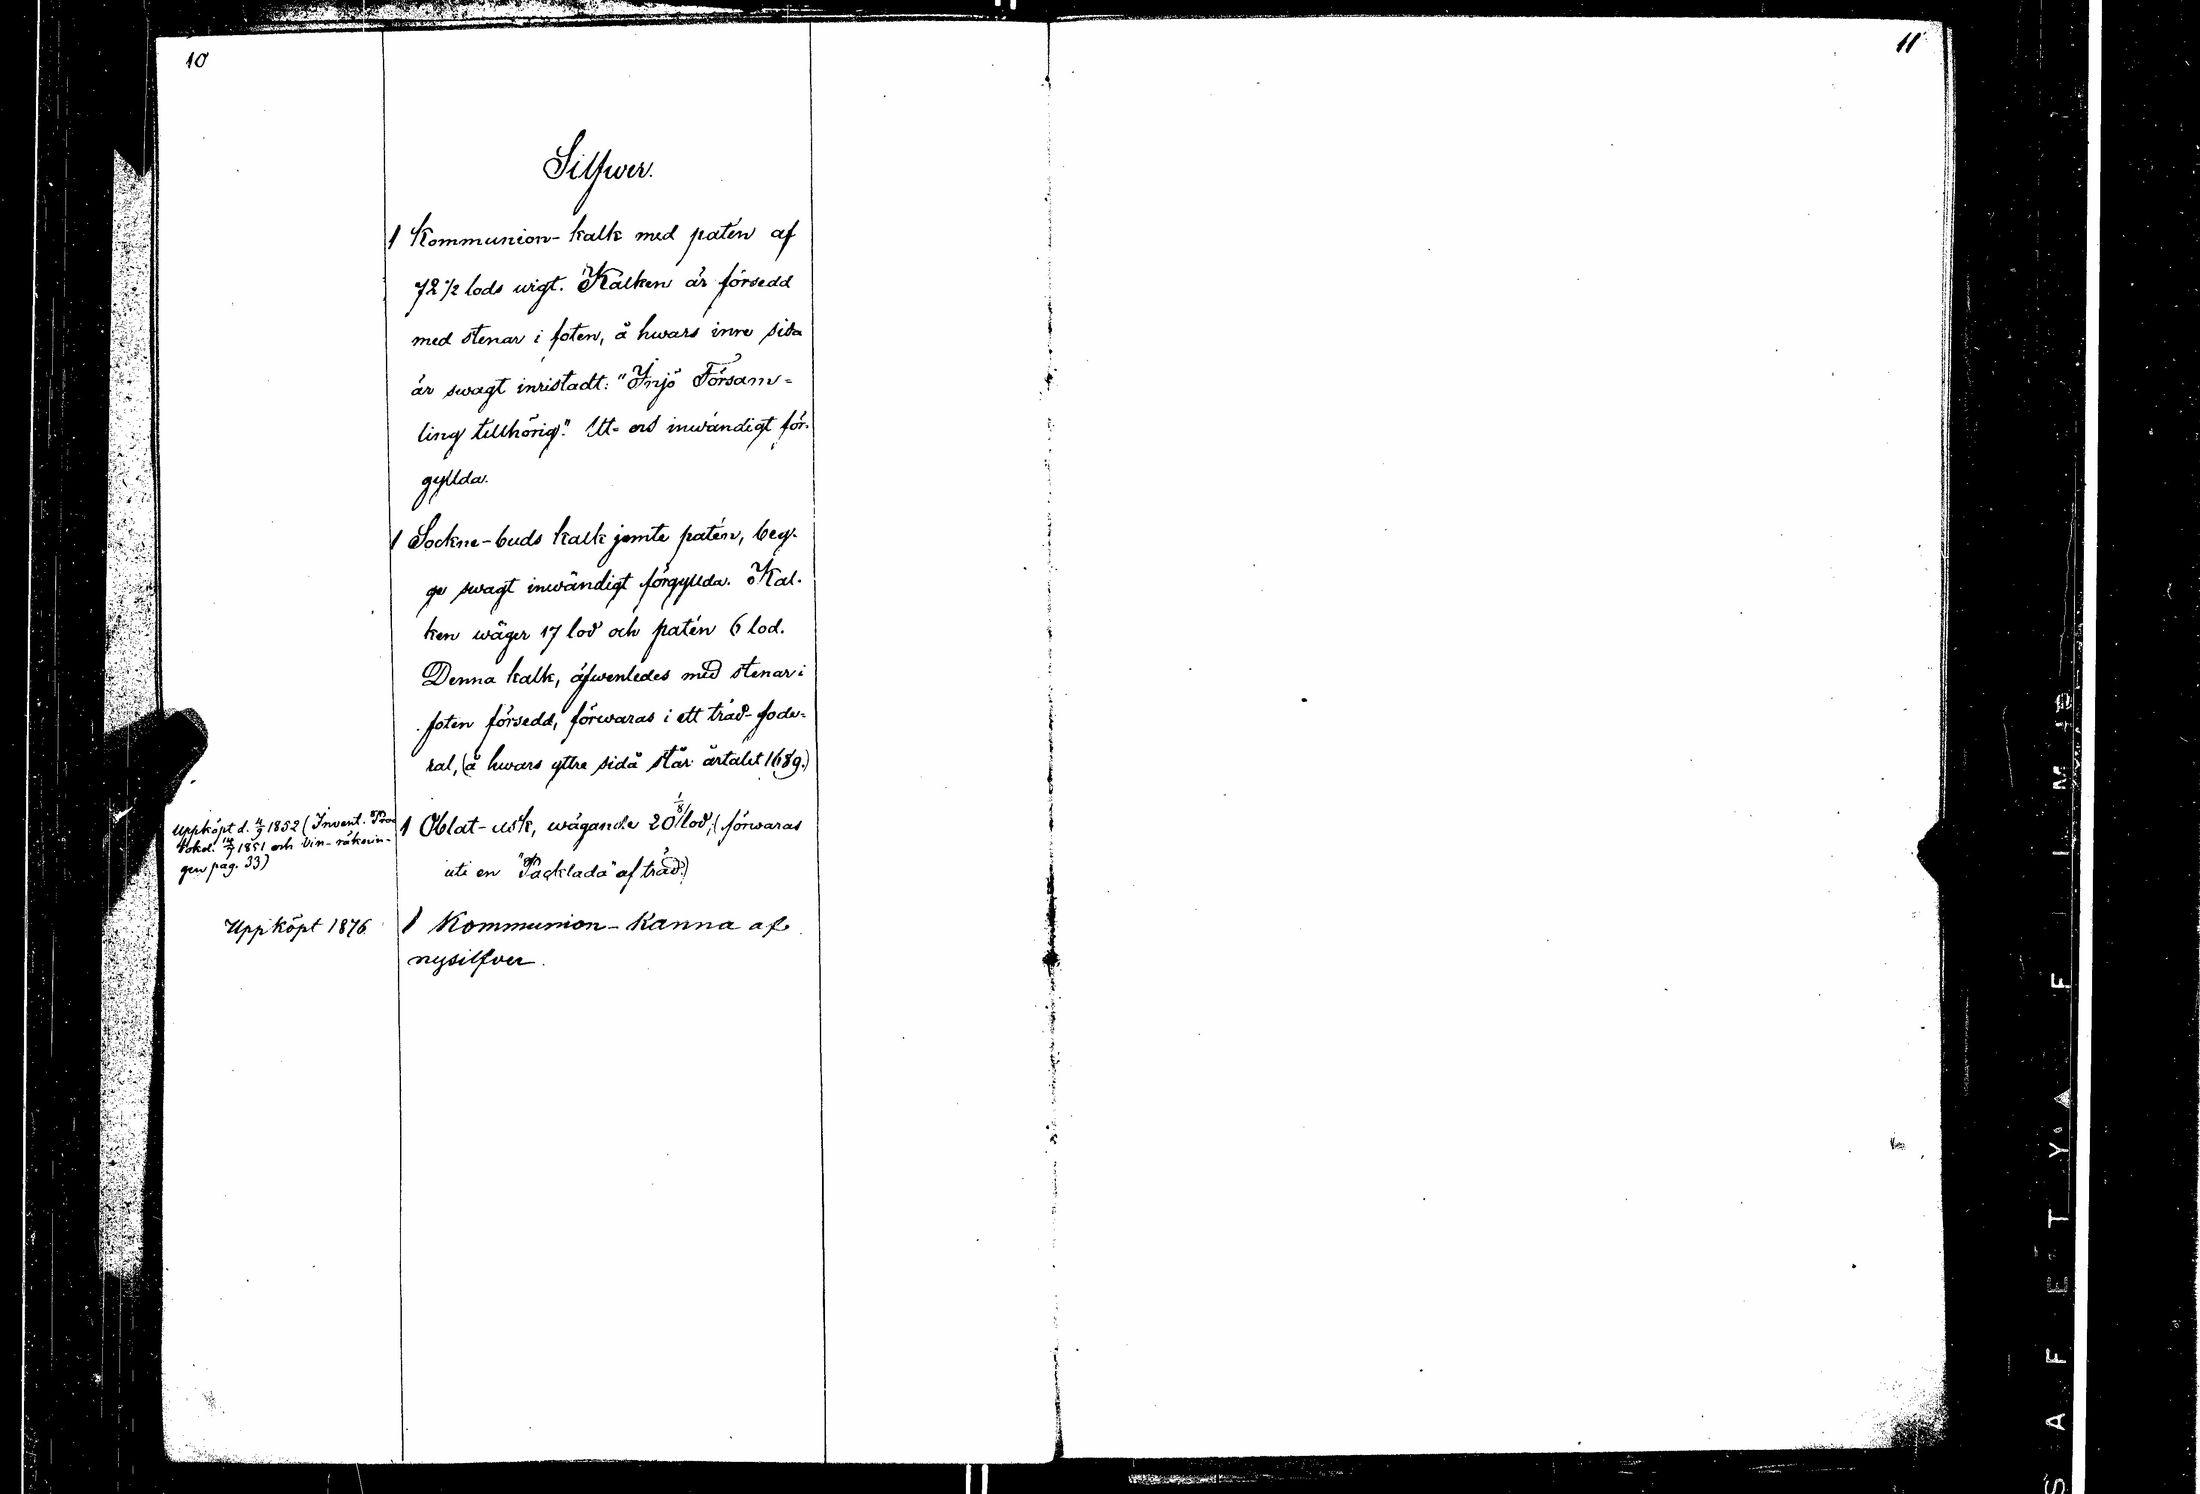 10
11
Silfwer.
1 Kommunion-kalk med patén af
72 1/2 lods wigt. Kalken är försedd
med stenar i foten, å hwars inre sida
är swagt inristadt: "Ynjö Försam-
ling tillhörig." Ut- och inwändigt för-
gyllda.
1 Sockne-buds kalk jemte patén, beg-
ge swagt inwändigt förgyllda. Kal-
ken wäger 17 lod och patén 6 lod.
Denna kalk, äfwenledes med stenar i
foten försedd, förwaras i ett träd-fode-
ral, (å hwars yttre sida står årtalet 1689.)
Uppköpt d. 4/9 1852 (Invent. Pro-
tokol. 14/7 1851 och Vin-räknin-
gen pag. 33)
1 Oblat-ask, wägande 20 1/8 lod, (förwaras
uti en "Packlada" af träd.)
Uppköpt 1876
1 Kommunion-Kanna af
nysilfver.
SAFETY FILM